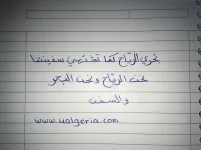 تجري الرياح كما تشتهي سفينتنا
نحن الرياح و نحن البحر
والسفن
www.ualgeria.com